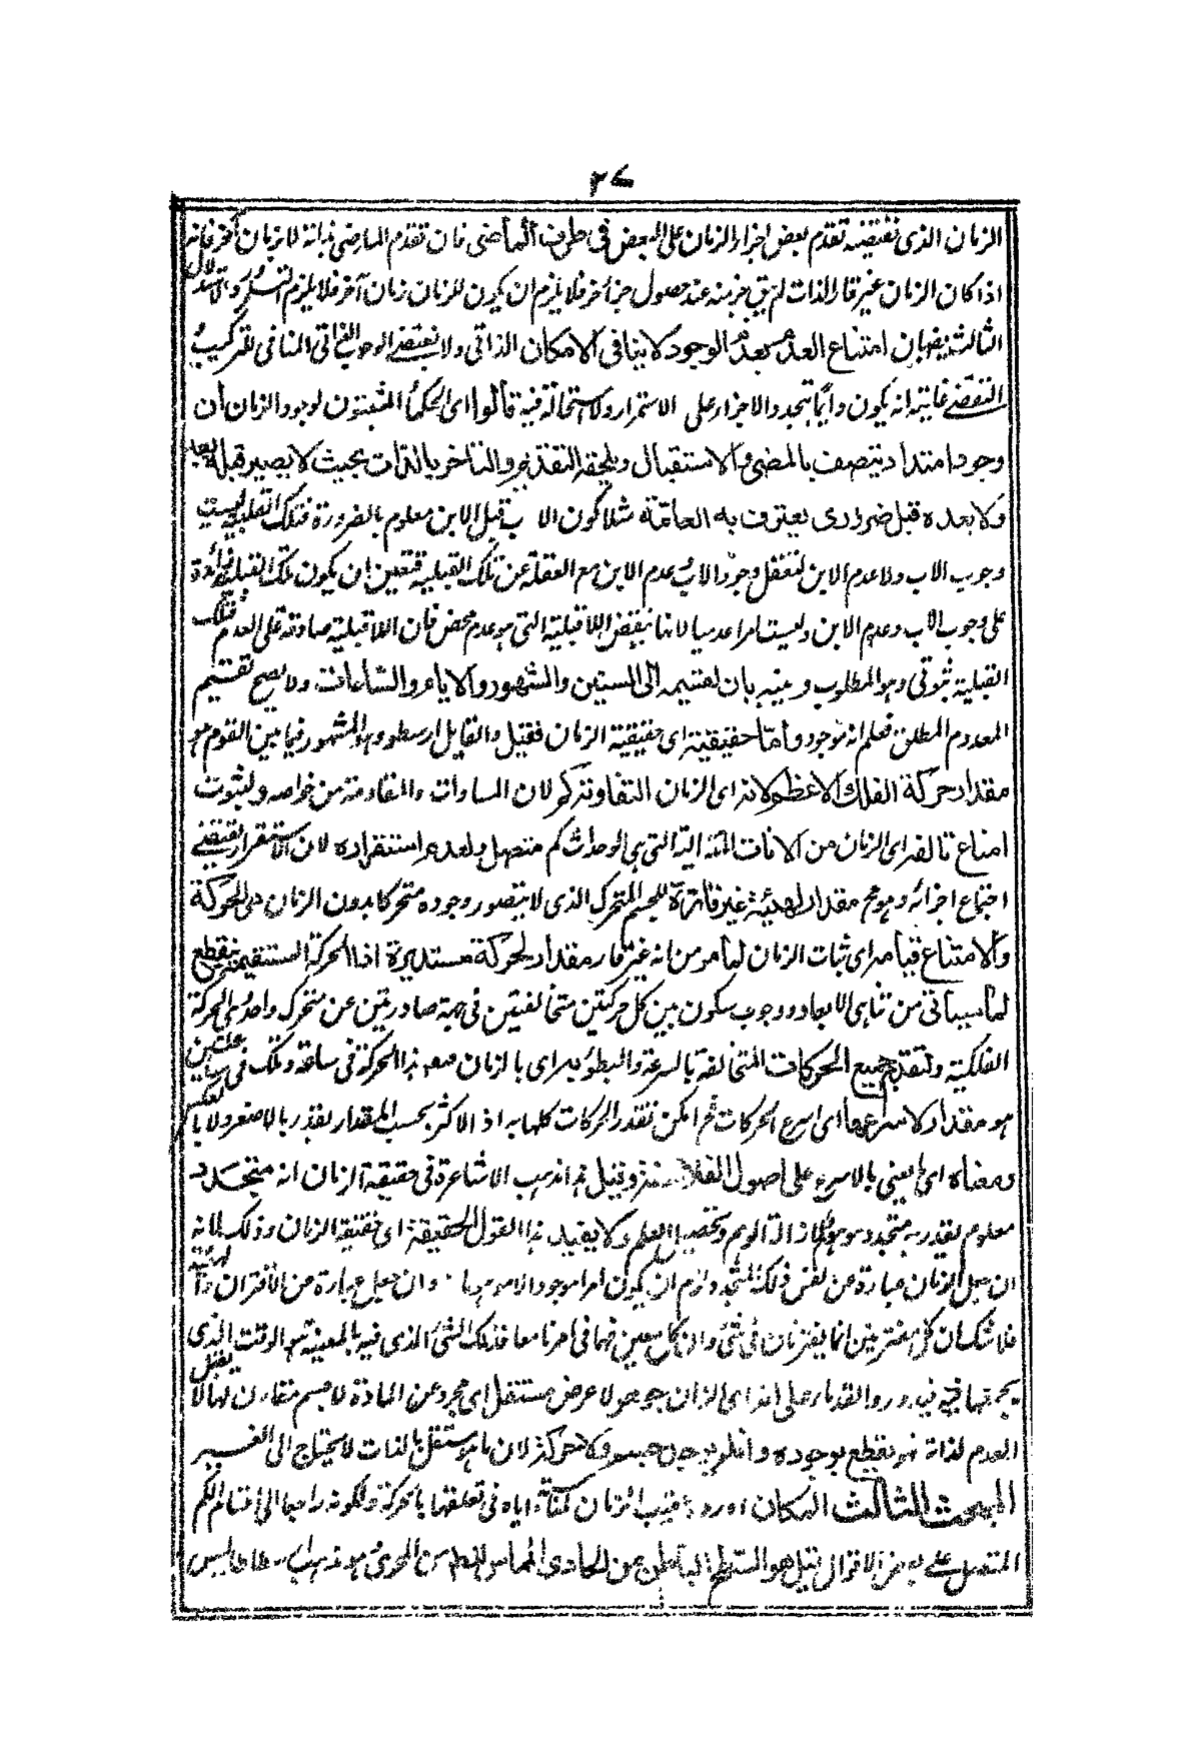 ٢٧
الزمان الذى تقتضيه تقدم بعض اجزاء الزمان على البعض فى طرف الماضى فان تقدم الماضى بذاته لا بزمان آخر فانه
اذا كان الزمان غير قار الذات لم يبق جزء منه عند حصول جزء آخر فلا يلزم ان يكون للزمان زمان آخر فلا يلزم التسلسل والاستدلال
الثالث بان امتناع العدم بعد الوجود لا ينافى الامكان الذاتى ولا يقتضى الوجوب الذاتى المنافى للتركيب
التقضى غايته انه يكون دائما يتجدد الاجزاء على الاستمرار ولا استحالة فيه قالوا اى الحكماء المثبتون لوجود الزمان ان
وجود امتداد يتصف بالمضى والاستقبال ويلحقه التقدم والتاخر بالذات بحيث لا يصير قبله بعد
ولا بعده قبل ضرورى يعترف به العامة مثلا كون الاب قبل الابن معلوم بالضرورة فتلك القبلية ليست
وجوب الاب ولا عدم الابن لتعقل وجود الاب وعدم الابن مع الغفلة عن تلك القبلية فتعين ان يكون تلك القبلية زائدة
على وجوب الاب وعدم الابن وليست امرا عدميا لانها نقيض اللاقبلية التى هو عدم محض فان اللاقبلية صادقة على العدم فتلك
القبلية ثبوتى وهو المطلوب وينبه بان تقسيمه الى السنين والشهور والايام والساعات ولا يصح تقسيم
المعدوم المطلق فعلم انه موجود واما حقيقته اى حقيقية الزمان فقيل والقايل ارسطو وهو المشهور فيما بين القوم هو
مقدار حركة الفلك الاعظم لانه اى الزمان التفاوته كم لان المساوات والمفاوتة من خواصه ولثبوت
امتناع تالفه اى الزمان من الانات المتتالية التى هى الوحدات كم متصل ولعدم استقراره لان الاستقرار يقتضى
اجتماع اجزائه وهو مح مقدار لهيئة غير قارة للجسم المتحرك الذى لا يتصور وجوده متحركا بدون الزمان هى الحركة
والامتناع فيامه اى ثبات الزمان لما مر من انه غير قار مقدار لحركة مستديرة اذ الحركة المستقيمة ينقطع
لما سيأتى من تناهى الابعاد ووجوب سكون بين كل حركتين متخالفتين فى جهة صادرتين عن متحرك واحد هى الحركة
الفلكية ولتقدر جميع الحركات المتخالفة بالسرعة والبطؤ به اى بالزمان هذا الحركة فى ساعة وتلك فى ساعتين
هو مقدار لاسرعها اى اسرع الحركات ثم امكن تقدر الحركات كلها به اذ الاكثر بحسب المقدار يقدر بالاصغر ولا بالعكس
ومبناه اى على اصول الفلاسفة وقيل هذا مذهب الاشاعرة فى حقيقة الزمان انه متجدد
معلوم يقدر به متجدد موهوم لازالة الوهم وتحصيل العلم ولا يفيد هذا القول الحقيقة اى حقيقة الزمان وذلك لانه
ان جعل الزمان عبارة عن نفس ذلك المتجدد لزم ان يكون امرا موجودا وان جعل عبارة من الاقتران
فلا شك ان كل مقترنين انما يقترنان فى شئ وان كل معين فهما فى امر ما معا فذلك الشئ الذى فيه بالمعية هو الوقت الذى
يجمعهما وقيل على انه اى الزمان جوهر لا عرض مستقل اى مجرد عن المادة لا جسم مقارن لها لا يقبل
العدم لذاته لان ما هو مستقل بالذات لا يحتاج الى الغير
المبحث الثالث المكان اورده عقيب الزمان لمشابهته اياه فى تعلقها بالحركة ولكونه راجعا الى اقسام الكم
المتصل على بعض الاقوال قيل هو السطح الباطن من الحاوى المماس للظاهر من المحوى وهو مذهب ارسطاطاليس